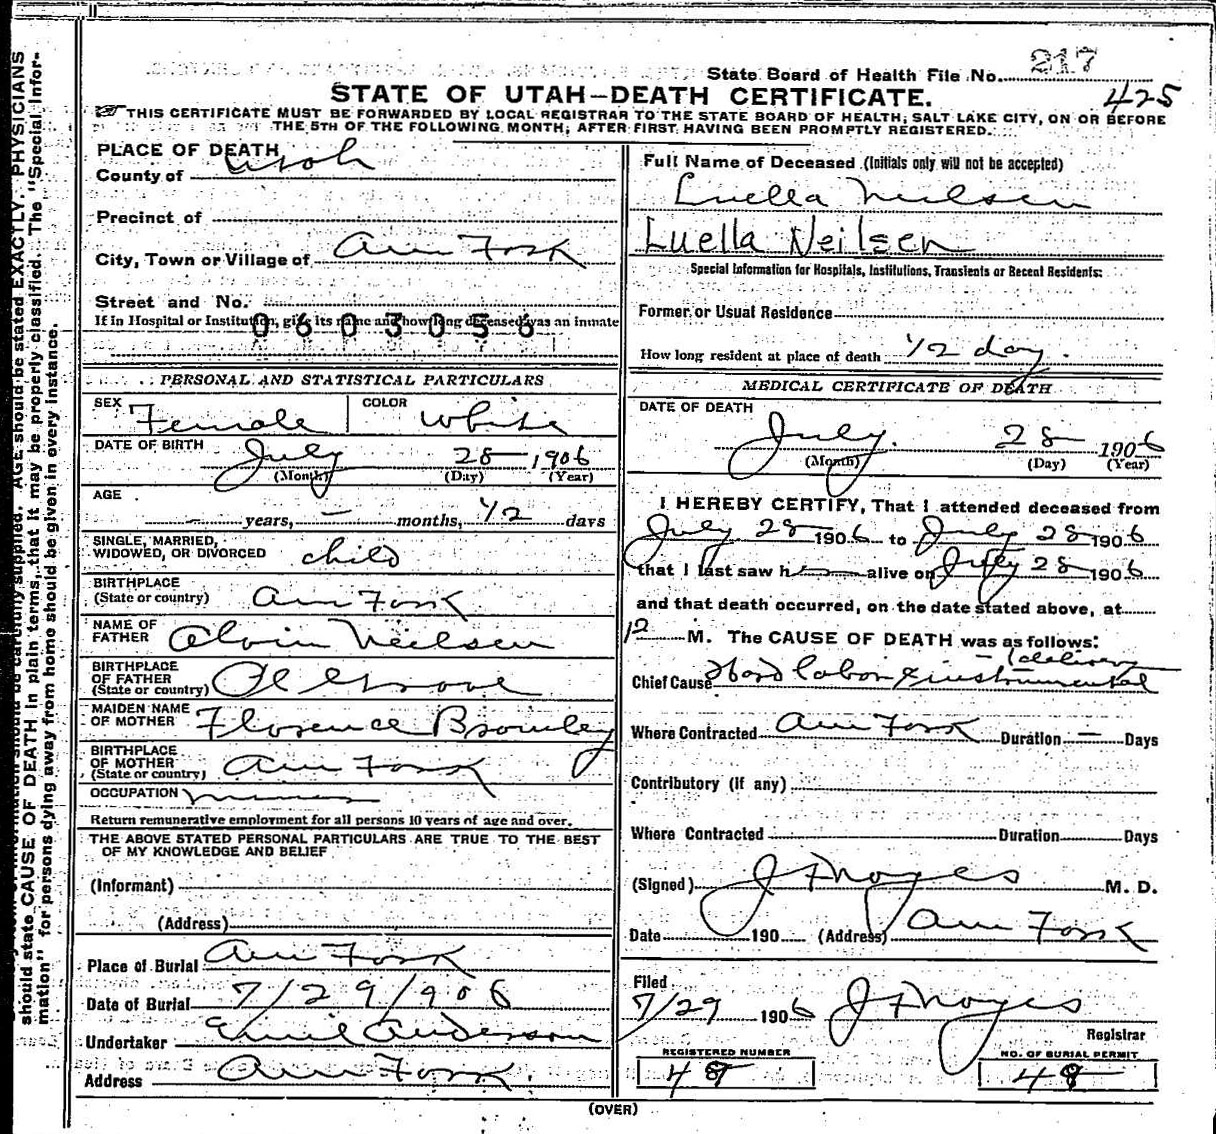 State Board of Health File No. 217
425
STATE OF UTAH—DEATH CERTIFICATE.
THIS CERTIFICATE MUST BE FORWARDED BY LOCAL REGISTRAR TO THE STATE BOARD OF HEALTH, SALT LAKE CITY, ON OR BEFORE
THE 5TH OF THE FOLLOWING MONTH, AFTER FIRST HAVING BEEN PROMPTLY REGISTERED.
PLACE OF DEATH
County of Utah
Precinct of
City, Town or Village of Am Fork
Street and No.
If in Hospital or Institution, give its name and how long deceased was an inmate
0603056
PERSONAL AND STATISTICAL PARTICULARS
SEX Female COLOR White
DATE OF BIRTH July 28 1906
(Month) (Day) (Year)
AGE
— years, — months, 1/2 days
SINGLE, MARRIED,
WIDOWED, OR DIVORCED child
BIRTHPLACE
(State or country) Am Fork
NAME OF
FATHER Alvin Neilsen
BIRTHPLACE
OF FATHER
(State or country) Pl Grove
MAIDEN NAME
OF MOTHER Florence Bromley
BIRTHPLACE
OF MOTHER
(State or country) Am Fork
OCCUPATION
Return remunerative employment for all persons 10 years of age and over.
THE ABOVE STATED PERSONAL PARTICULARS ARE TRUE TO THE BEST
OF MY KNOWLEDGE AND BELIEF
(Informant)
(Address)
Place of Burial Am Fork
Date of Burial 7/29/906
Undertaker Emil Anderson
Address Am Fork
Full Name of Deceased (Initials only will not be accepted)
Luella Neilsen
Luella Neilsen
Special Information for Hospitals, Institutions, Transients or Recent Residents:
Former or Usual Residence
How long resident at place of death 1/2 day.
MEDICAL CERTIFICATE OF DEATH
DATE OF DEATH
July 28 1906
(Month) (Day) (Year)
I HEREBY CERTIFY, That I attended deceased from
July 28 1906 to July 28 1906
that I last saw h alive on July 28 1906
and that death occurred, on the date stated above, at
12 M. The CAUSE OF DEATH was as follows:
Chief Cause Hard labor & instrumental delivery
Where Contracted Am Fork Duration — Days
Contributory (if any)
Where Contracted Duration Days
(Signed) J F Noyes M. D.
Date 190 (Address) Am Fork
Filed
7/29 1906 J F Noyes
Registrar
REGISTERED NUMBER
48
NO. OF BURIAL PERMIT
48
(OVER)
should be carefully supplied. AGE should be stated EXACTLY. PHYSICIANS
should state CAUSE OF DEATH in plain terms, that it may be properly classified. The "Special Infor-
mation" for persons dying away from home should be given in every instance.